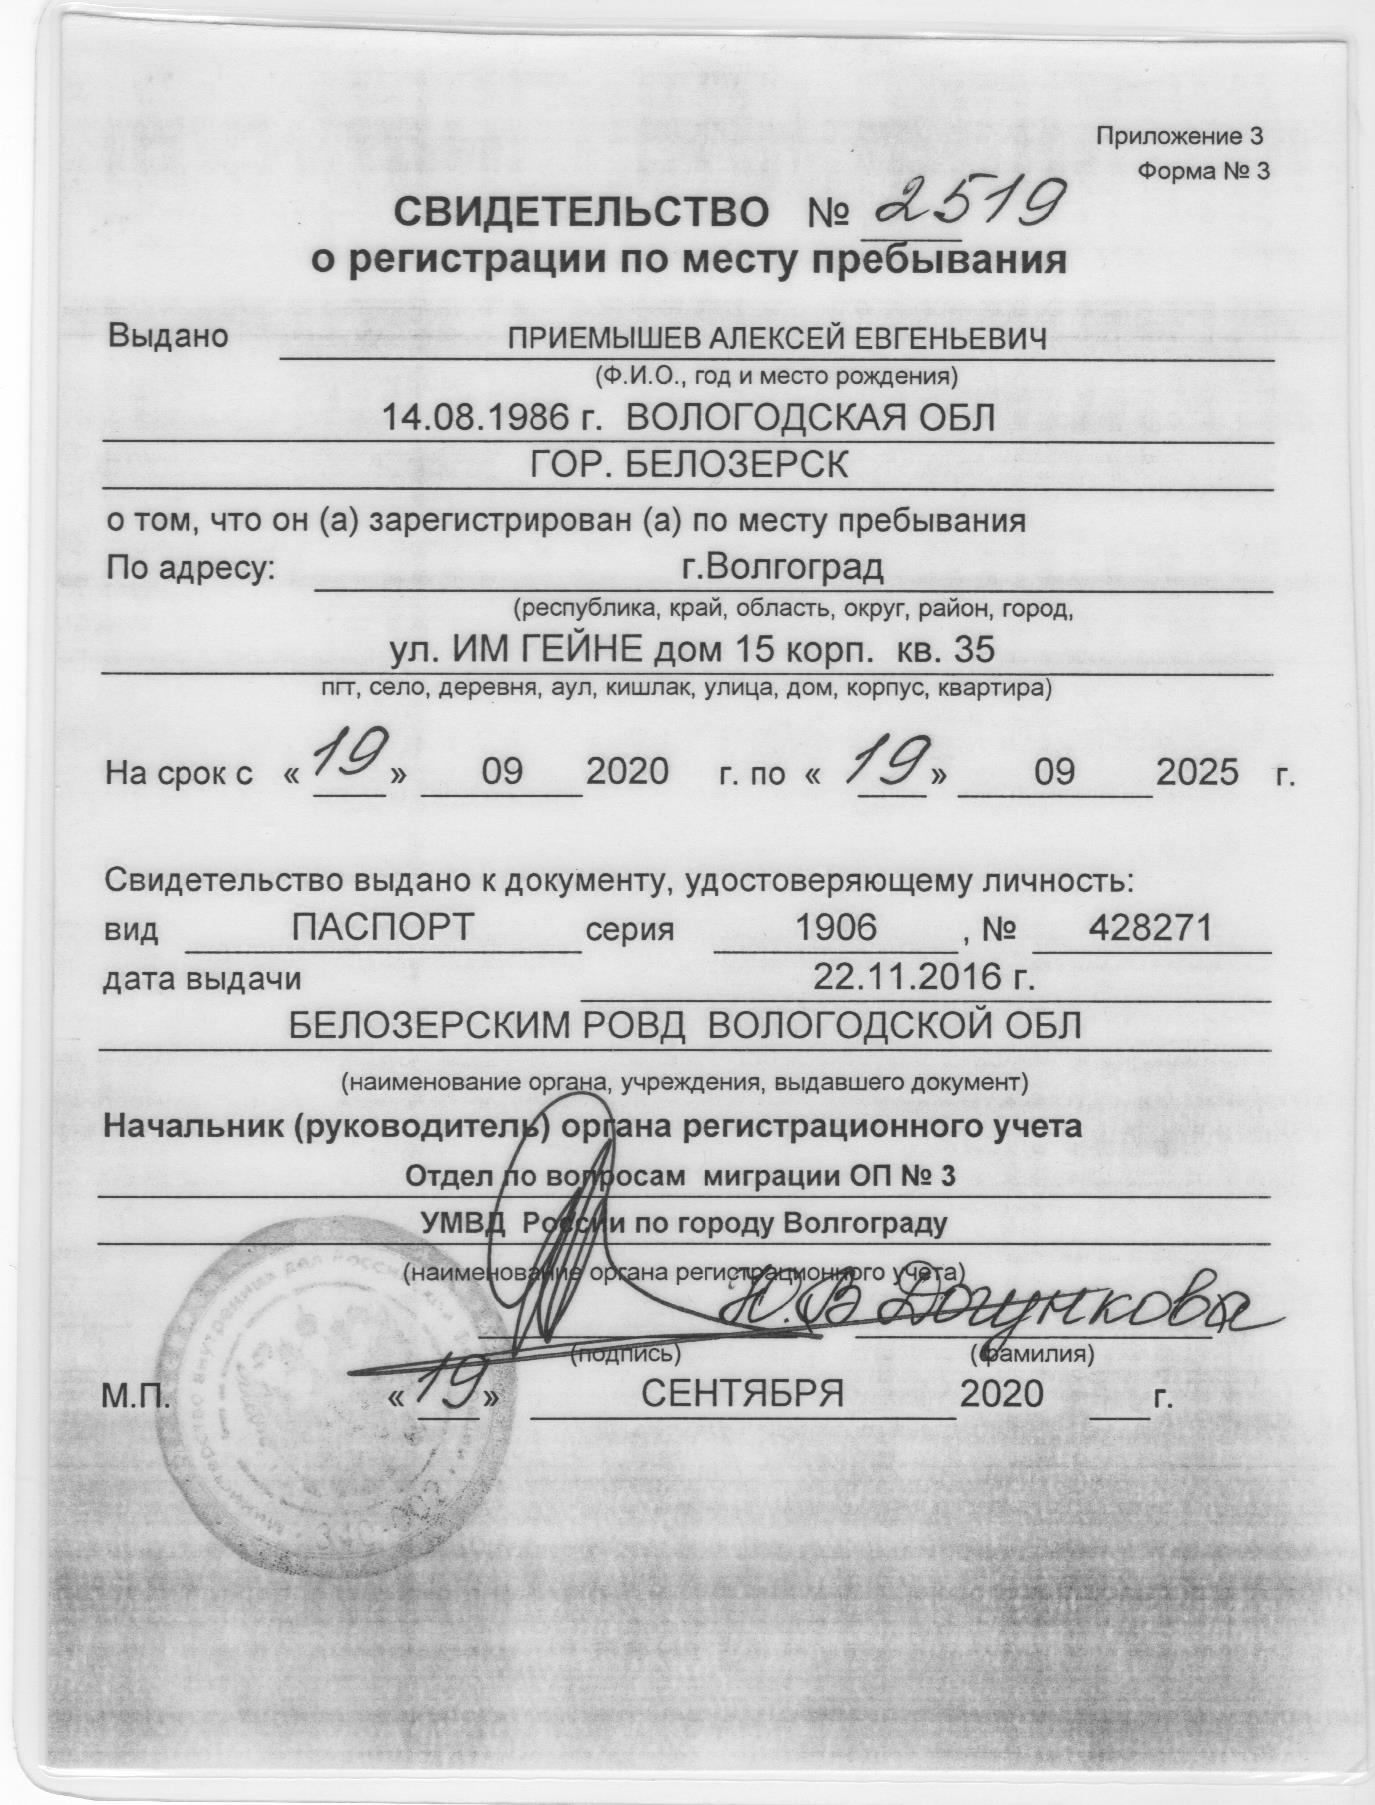 Приложение 3
Форма № 3
СВИДЕТЕЛЬСТВО № 2519
о регистрации по месту пребывания
Выдано ПРИЕМЫШЕВ АЛЕКСЕЙ ЕВГЕНЬЕВИЧ
(Ф.И.О., год и место рождения)
14.08.1986 г. ВОЛОГОДСКАЯ ОБЛ
ГОР. БЕЛОЗЕРСК
о том, что он (а) зарегистрирован (а) по месту пребывания
По адресу: г.Волгоград
(республика, край, область, округ, район, город,
ул. ИМ ГЕЙНЕ дом 15 корп. кв. 35
пгт, село, деревня, аул, кишлак, улица, дом, корпус, квартира)
На срок с «19» 09 2020 г. по «19» 09 2025 г.
Свидетельство выдано к документу, удостоверяющему личность:
вид ПАСПОРТ серия 1906 , № 428271
дата выдачи 22.11.2016 г.
БЕЛОЗЕРСКИМ РОВД ВОЛОГОДСКОЙ ОБЛ
(наименование органа, учреждения, выдавшего документ)
Начальник (руководитель) органа регистрационного учета
Отдел по вопросам миграции ОП № 3
УМВД России по городу Волгограду
(наименование органа регистрационного учета)
Ю.В Догункова
(подпись) (фамилия)
М.П. «19» СЕНТЯБРЯ 2020 г.